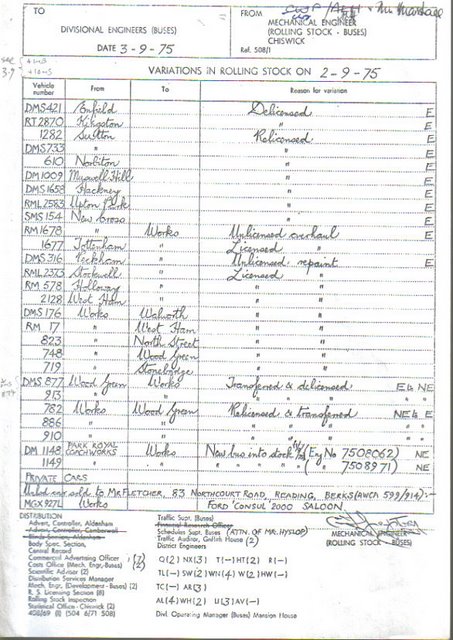 TO
DIVISIONAL ENGINEERS (BUSES)
DATE 3-9-75
FROM
MECHANICAL ENGINEER
(ROLLING STOCK - BUSES)
CHISWICK
Ref. 508/1
VARIATIONS IN ROLLING STOCK ON 2-9-75
Vehicle number From To Reason for variation
DMS421 Enfield Delicensed E
RT2870 Kingston " E
1282 Sutton Relicensed E
DMS733 " " E
610 Norbiton " E
DM1009 Muswell Hill " E
DMS1658 Hackney " E
RML2583 Upton Park " E
SMS154 New Cross " E
RM1678 " Works Unlicensed overhaul E
1677 Tottenham " Licensed "
DMS316 Peckham " Unlicensed repaint E
RML2373 Stockwell " Licensed "
RM578 Holloway " " "
2128 West Ham " " "
DMS176 Works Walworth " "
RM 17 " West Ham " "
823 " North Street " "
748 " Wood Green " "
719 " Stonebridge " "
DMS877 Wood Green Works Transferred & delicensed E to NE
913 " " " " "
782 Works Wood Green Relicensed & transferred NE to E
886 " " " " "
910 " " " " "
DM 1148 PARK ROYAL COACHWORKS Works New bus into stock (Eng No 7508062) NE
1149 " " " " ( " 7508971) NE
PRIVATE CARS
Used car sold to MR FLETCHER, 83 NORTHCOURT ROAD, READING, BERKS (AWCH 599/914):-
MGX927L (Works FORD 'CONSUL 2000 SALOON
DISTRIBUTION
Advert. Controller, Aldenham
Body Spec. Section,
Central Record
Commercial Advertising Officer (7)
Costs Office (Mech. Engr.-Buses) (2)
Scientific Adviser (2)
Distribution Services Manager
Mech. Engr. (Development - Buses) (2)
R. S. Licensing Section (8)
Rolling Stock Inspection
Statistical Office - Chiswick (2)
408/69 (1) (504 6/71 508)
Traffic Supt. (Buses)
Financial Research Officer
Schedules Supt. Buses (ATTN. OF MR. HYSLOP)
Traffic Auditor, Griffith House (2)
District Engineers
Q(2) NX(3) T(-) HT(2) R(-)
TL(-) SW(2) WN(4) W(2) HW(-)
TC(-) AR(3)
AL(4) WH(2) U(3) AV(-)
Divl. Operating Manager (Buses) Mansion House
MECHANICAL ENGINEER
(ROLLING STOCK - BUSES)